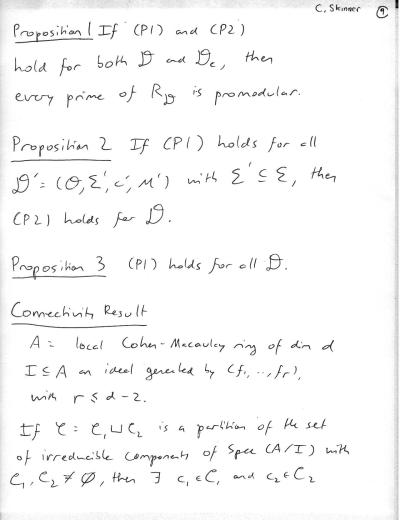 C. Skinner ⑨
Proposition 1 If (P1) and (P2)
hold for both 𝒟 and 𝒟c, then
every prime of R𝒟 is promodular.
Proposition 2 If (P1) holds for all
𝒟' = (𝒪, Σ', c', M') with Σ' ⊆ Σ, then
(P2) holds for 𝒟.
Proposition 3 (P1) holds for all 𝒟.
Connectivity Result
A = local Cohen-Macaulay ring of dim d
I ⊆ A an ideal generated by (f1, .., fr),
with r ≤ d-2.
If 𝒞 = 𝒞1 ⊔ 𝒞2 is a partition of the set
of irreducible components of Spec (A/I) with
𝒞1, 𝒞2 ≠ ∅, then ∃ c1 ∈ 𝒞1 and c2 ∈ 𝒞2